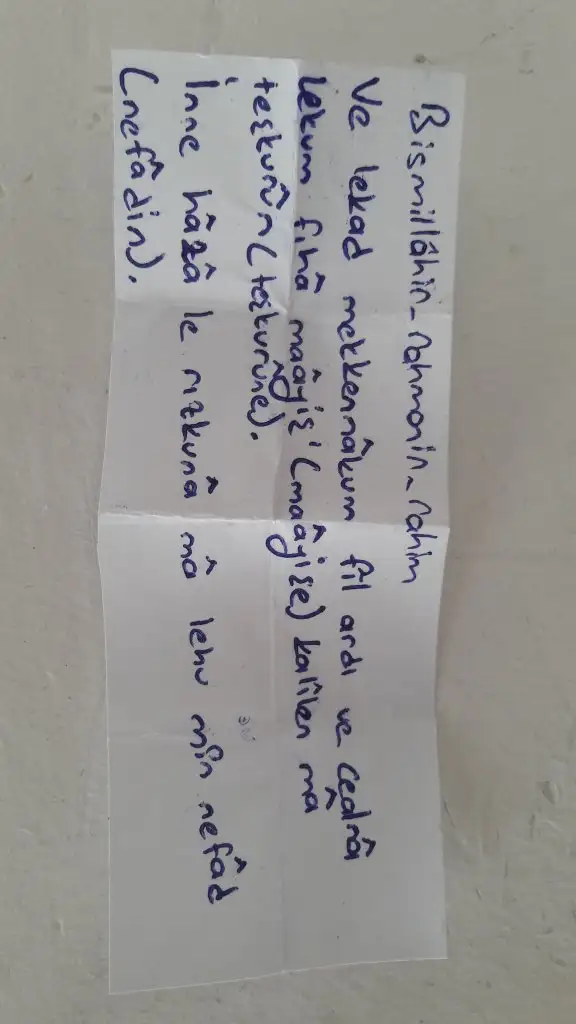 Bismillâhir-rahmanir-rahim
Ve lekad mekkennâkum fîl ardı ve cealnâ
lekum fîhâ maâyiş' (maâyişe) kalîlen mâ
teşkurûn (teşkurûne).
İnne hâzâ le rızkunâ mâ lehu min nefâd
(nefâdin).